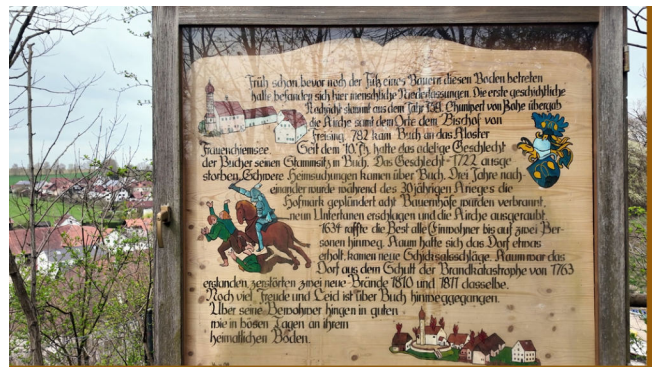 Früh schon bevor noch der Fuß eines Bauern diesen Boden betreten
hatte, befanden sich hier menschliche Niederlassungen. Die erste geschichtliche
Nachricht stammt aus dem Jahr Chunipert von Bohe übergab
die Kirche samt dem Orte dem Bischof von
Freising. 782 kam Buch an das Kloster
Frauenchiemsee. Seit dem 10. Jh. hatte das adelige Geschlecht
der Bucher seinen Stammsitz in Buch. Das Geschlecht -1722 ausge
storben. Schwere Heimsuchungen kamen über Buch. Drei Jahre nach
einander wurde während des 30jährigen Krieges die
Hofmark geplündert acht Bauernhöfe wurden verbrannt,
neun Untertanen erschlagen und die Kirche ausgeraubt.
1634 raffte die Pest alle Einwohner bis auf zwei Per-
sonen hinweg. Kaum hatte sich das Dorf etwas
erholt, kamen neue Schicksalsschläge. Kaum war das
Dorf aus dem Schutt der Brandkatastrophe von 1763
erstanden, zerstörten zwei neue Brände 1810 und 1811 dasselbe.
Noch viel Freude und Leid ist über Buch hinweggegangen.
Über seine Bewohner hingen in guten
wie in bösen Tagen an ihrem
heimatlichen Boden.